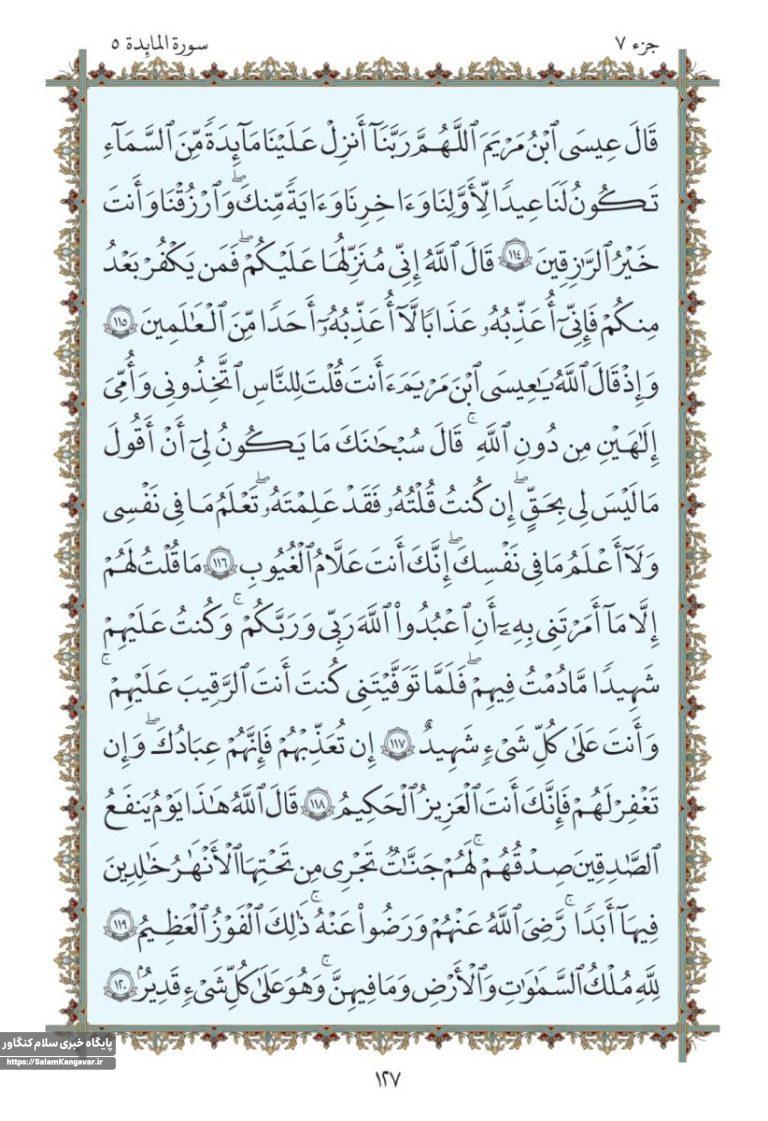 جزء ٧
سورة المائدة ٥
قَالَ عِيسَى ٱبْنُ مَرْيَمَ ٱللَّهُمَّ رَبَّنَآ أَنزِلْ عَلَيْنَا مَآئِدَةً مِّنَ ٱلسَّمَآءِ
تَكُونُ لَنَا عِيدًا لِّأَوَّلِنَا وَءَاخِرِنَا وَءَايَةً مِّنكَ ۖ وَٱرْزُقْنَا وَأَنتَ
خَيْرُ ٱلرَّٰزِقِينَ ١١٤ قَالَ ٱللَّهُ إِنِّى مُنَزِّلُهَا عَلَيْكُمْ ۖ فَمَن يَكْفُرْ بَعْدُ
مِنكُمْ فَإِنِّىٓ أُعَذِّبُهُۥ عَذَابًا لَّآ أُعَذِّبُهُۥٓ أَحَدًا مِّنَ ٱلْعَٰلَمِينَ ١١٥
وَإِذْ قَالَ ٱللَّهُ يَٰعِيسَى ٱبْنَ مَرْيَمَ ءَأَنتَ قُلْتَ لِلنَّاسِ ٱتَّخِذُونِى وَأُمِّىَ
إِلَٰهَيْنِ مِن دُونِ ٱللَّهِ ۖ قَالَ سُبْحَٰنَكَ مَا يَكُونُ لِىٓ أَنْ أَقُولَ
مَا لَيْسَ لِى بِحَقٍّ ۚ إِن كُنتُ قُلْتُهُۥ فَقَدْ عَلِمْتَهُۥ ۚ تَعْلَمُ مَا فِى نَفْسِى
وَلَآ أَعْلَمُ مَا فِى نَفْسِكَ ۚ إِنَّكَ أَنتَ عَلَّٰمُ ٱلْغُيُوبِ ١١٦ مَا قُلْتُ لَهُمْ
إِلَّا مَآ أَمَرْتَنِى بِهِۦٓ أَنِ ٱعْبُدُوا۟ ٱللَّهَ رَبِّى وَرَبَّكُمْ ۚ وَكُنتُ عَلَيْهِمْ
شَهِيدًا مَّا دُمْتُ فِيهِمْ ۖ فَلَمَّا تَوَفَّيْتَنِى كُنتَ أَنتَ ٱلرَّقِيبَ عَلَيْهِمْ ۚ
وَأَنتَ عَلَىٰ كُلِّ شَىْءٍ شَهِيدٌ ١١٧ إِن تُعَذِّبْهُمْ فَإِنَّهُمْ عِبَادُكَ ۖ وَإِن
تَغْفِرْ لَهُمْ فَإِنَّكَ أَنتَ ٱلْعَزِيزُ ٱلْحَكِيمُ ١١٨ قَالَ ٱللَّهُ هَٰذَا يَوْمُ يَنفَعُ
ٱلصَّٰدِقِينَ صِدْقُهُمْ ۚ لَهُمْ جَنَّٰتٌ تَجْرِى مِن تَحْتِهَا ٱلْأَنْهَٰرُ خَٰلِدِينَ
فِيهَآ أَبَدًا ۚ رَّضِىَ ٱللَّهُ عَنْهُمْ وَرَضُوا۟ عَنْهُ ۚ ذَٰلِكَ ٱلْفَوْزُ ٱلْعَظِيمُ ١١٩
لِلَّهِ مُلْكُ ٱلسَّمَٰوَٰتِ وَٱلْأَرْضِ وَمَا فِيهِنَّ ۚ وَهُوَ عَلَىٰ كُلِّ شَىْءٍ قَدِيرٌۢ ١٢٠
پایگاه خبری سلام کنگاور
https://SalamKangavar.ir
١٢٧